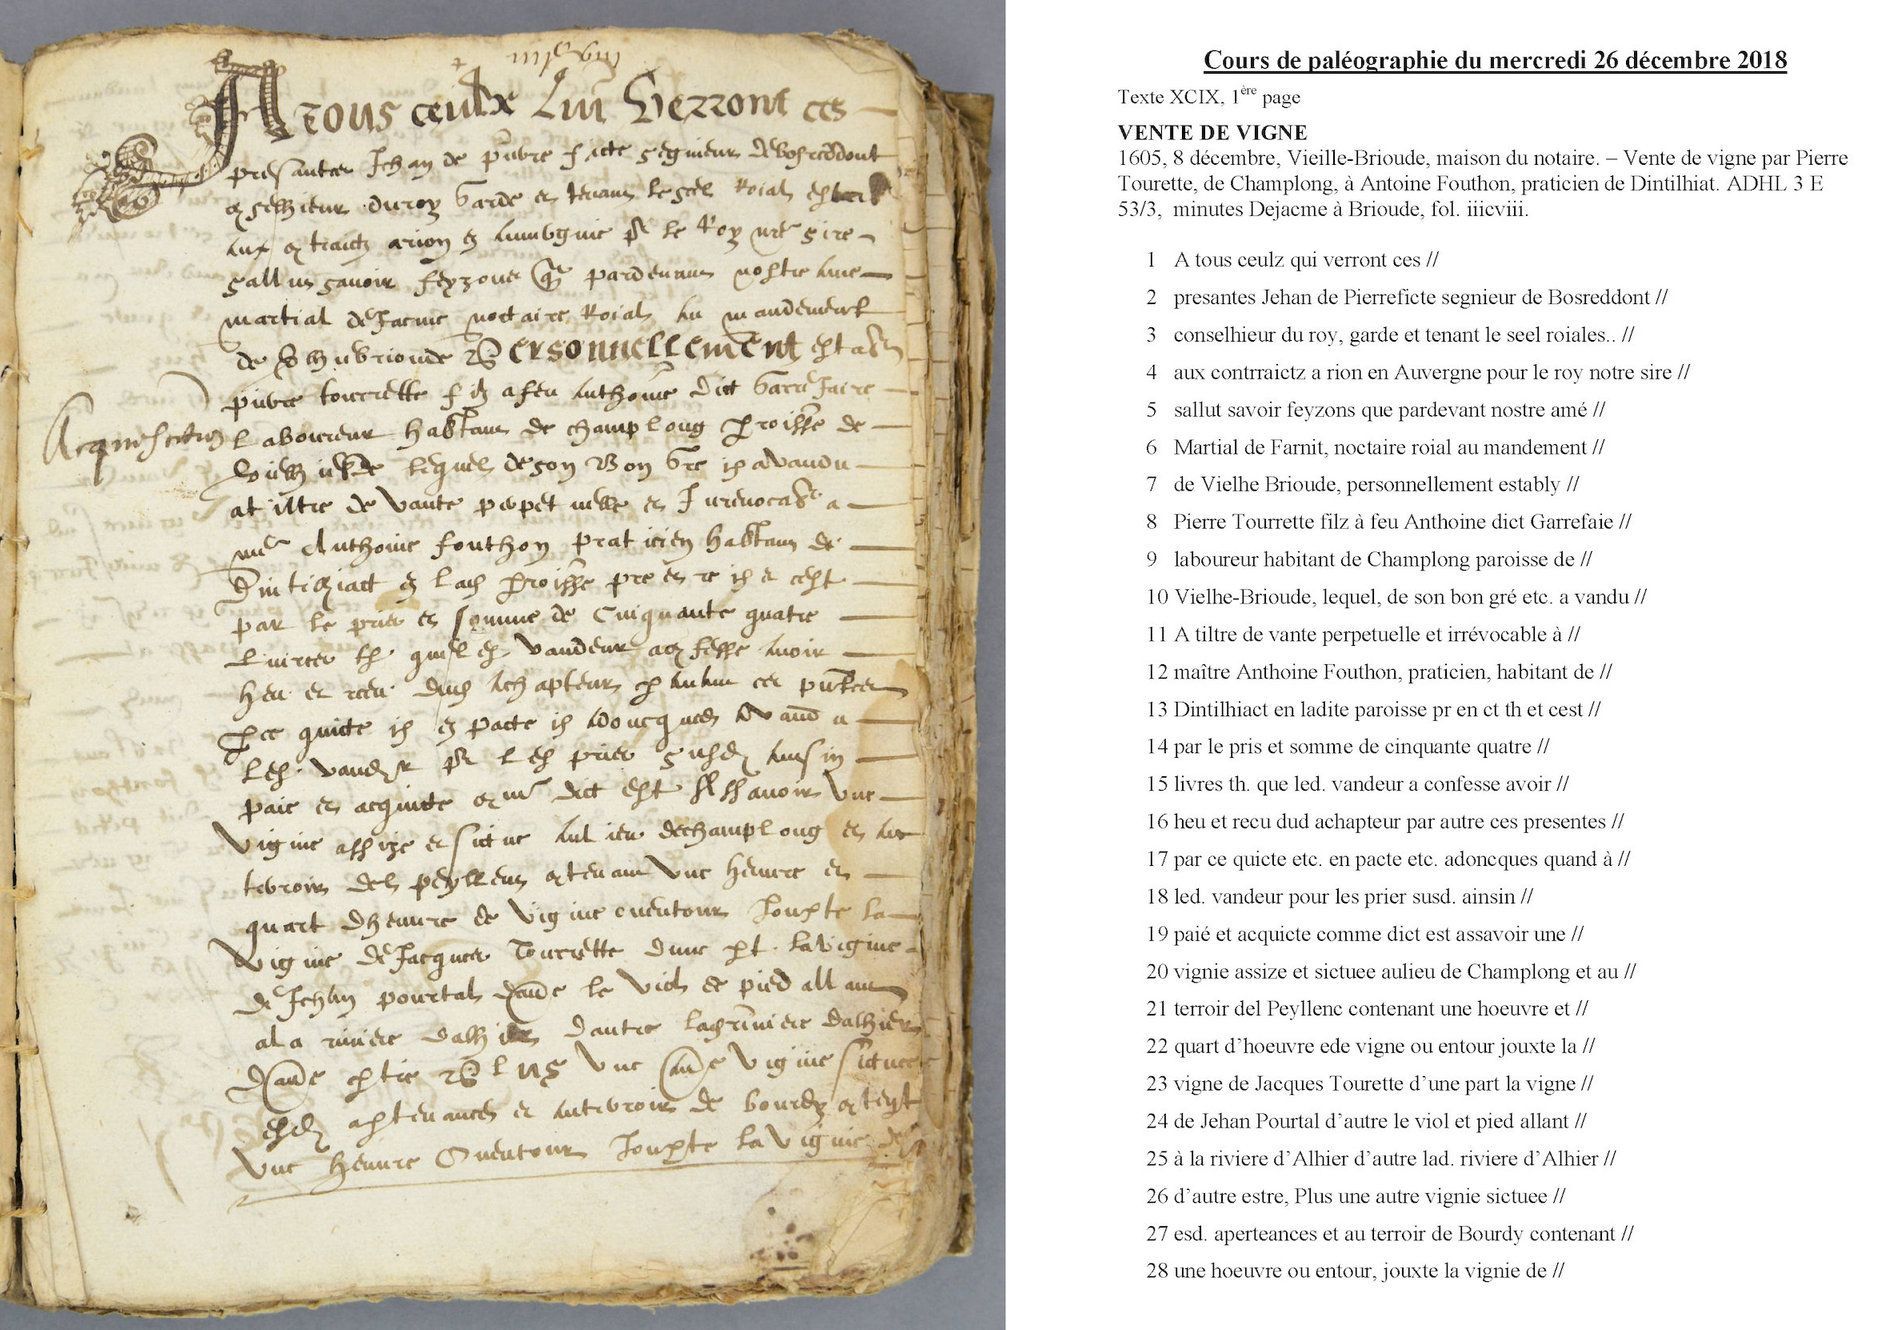 iiiicviii
A tous ceulx qui verront ces
presantes Jehan de segnieur de bosreddont
du roy garde et tenant le seel roial
aux a rion en auvergnie pr le roy sire
sallut savoir feyzons que pardevant nostre ame
martial noctaire roial au mandement
de brioude Personnellement
pierre tourrette filz a feu anthoine dict
Acquisition
laboureur habitant de champlong parroisse de
lequel de son bon gre a vandu
a tiltre de vante perpetuelle et irrevocable a
anthoine fouthon praticien habitant de
parroisse
par le pries et somme de cinquante quatre
vandeur avoir
heu et receu dud achapteur
quicte en pacte adoncques
led vandeur pr led pries susd ainsin
paie et acquicte dict est assavoir une
vignie assize et sictue au lieu de champlong et au
terroir del peyllenc une heuvre et
quart dheuvre de vignie ou entour jouxte la
vignie de jacques tourrette dune part la vignie
de jehan pourtal le viol et pied allant
a la riviere dautre la riviere dalhier
Plus une vignie sictuee
et au terroir de
une heuvre ou entour jouxte la vignie de
Cours de paléographie du mercredi 26 décembre 2018
Texte XCIX, 1ère page
VENTE DE VIGNE
1605, 8 décembre, Vieille-Brioude, maison du notaire. – Vente de vigne par Pierre
Tourette, de Champlong, à Antoine Fouthon, praticien de Dintilhiat. ADHL 3 E
53/3, minutes Dejacme à Brioude, fol. iiicviii.
1 A tous ceulz qui verront ces //
2 presantes Jehan de Pierreficte segnieur de Bosreddont //
3 conselhieur du roy, garde et tenant le seel roiales.. //
4 aux contrraictz a rion en Auvergne pour le roy notre sire //
5 sallut savoir feyzons que pardevant nostre amé //
6 Martial de Farnit, noctaire roial au mandement //
7 de Vielhe Brioude, personnellement estably //
8 Pierre Tourrette filz à feu Anthoine dict Garrefaie //
9 laboureur habitant de Champlong paroisse de //
10 Vielhe-Brioude, lequel, de son bon gré etc. a vandu //
11 A tiltre de vante perpetuelle et irrévocable à //
12 maître Anthoine Fouthon, praticien, habitant de //
13 Dintilhiact en ladite paroisse pr en ct th et cest //
14 par le pris et somme de cinquante quatre //
15 livres th. que led. vandeur a confesse avoir //
16 heu et recu dud achapteur par autre ces presentes //
17 par ce quicte etc. en pacte etc. adoncques quand à //
18 led. vandeur pour les prier susd. ainsin //
19 paié et acquicte comme dict est assavoir une //
20 vignie assize et sictuee aulieu de Champlong et au //
21 terroir del Peyllenc contenant une hoeuvre et //
22 quart d’hoeuvre ede vigne ou entour jouxte la //
23 vigne de Jacques Tourette d’une part la vigne //
24 de Jehan Pourtal d’autre le viol et pied allant //
25 à la riviere d’Alhier d’autre lad. riviere d’Alhier //
26 d’autre estre, Plus une autre vignie sictuee //
27 esd. aperteances et au terroir de Bourdy contenant //
28 une hoeuvre ou entour, jouxte la vignie de //